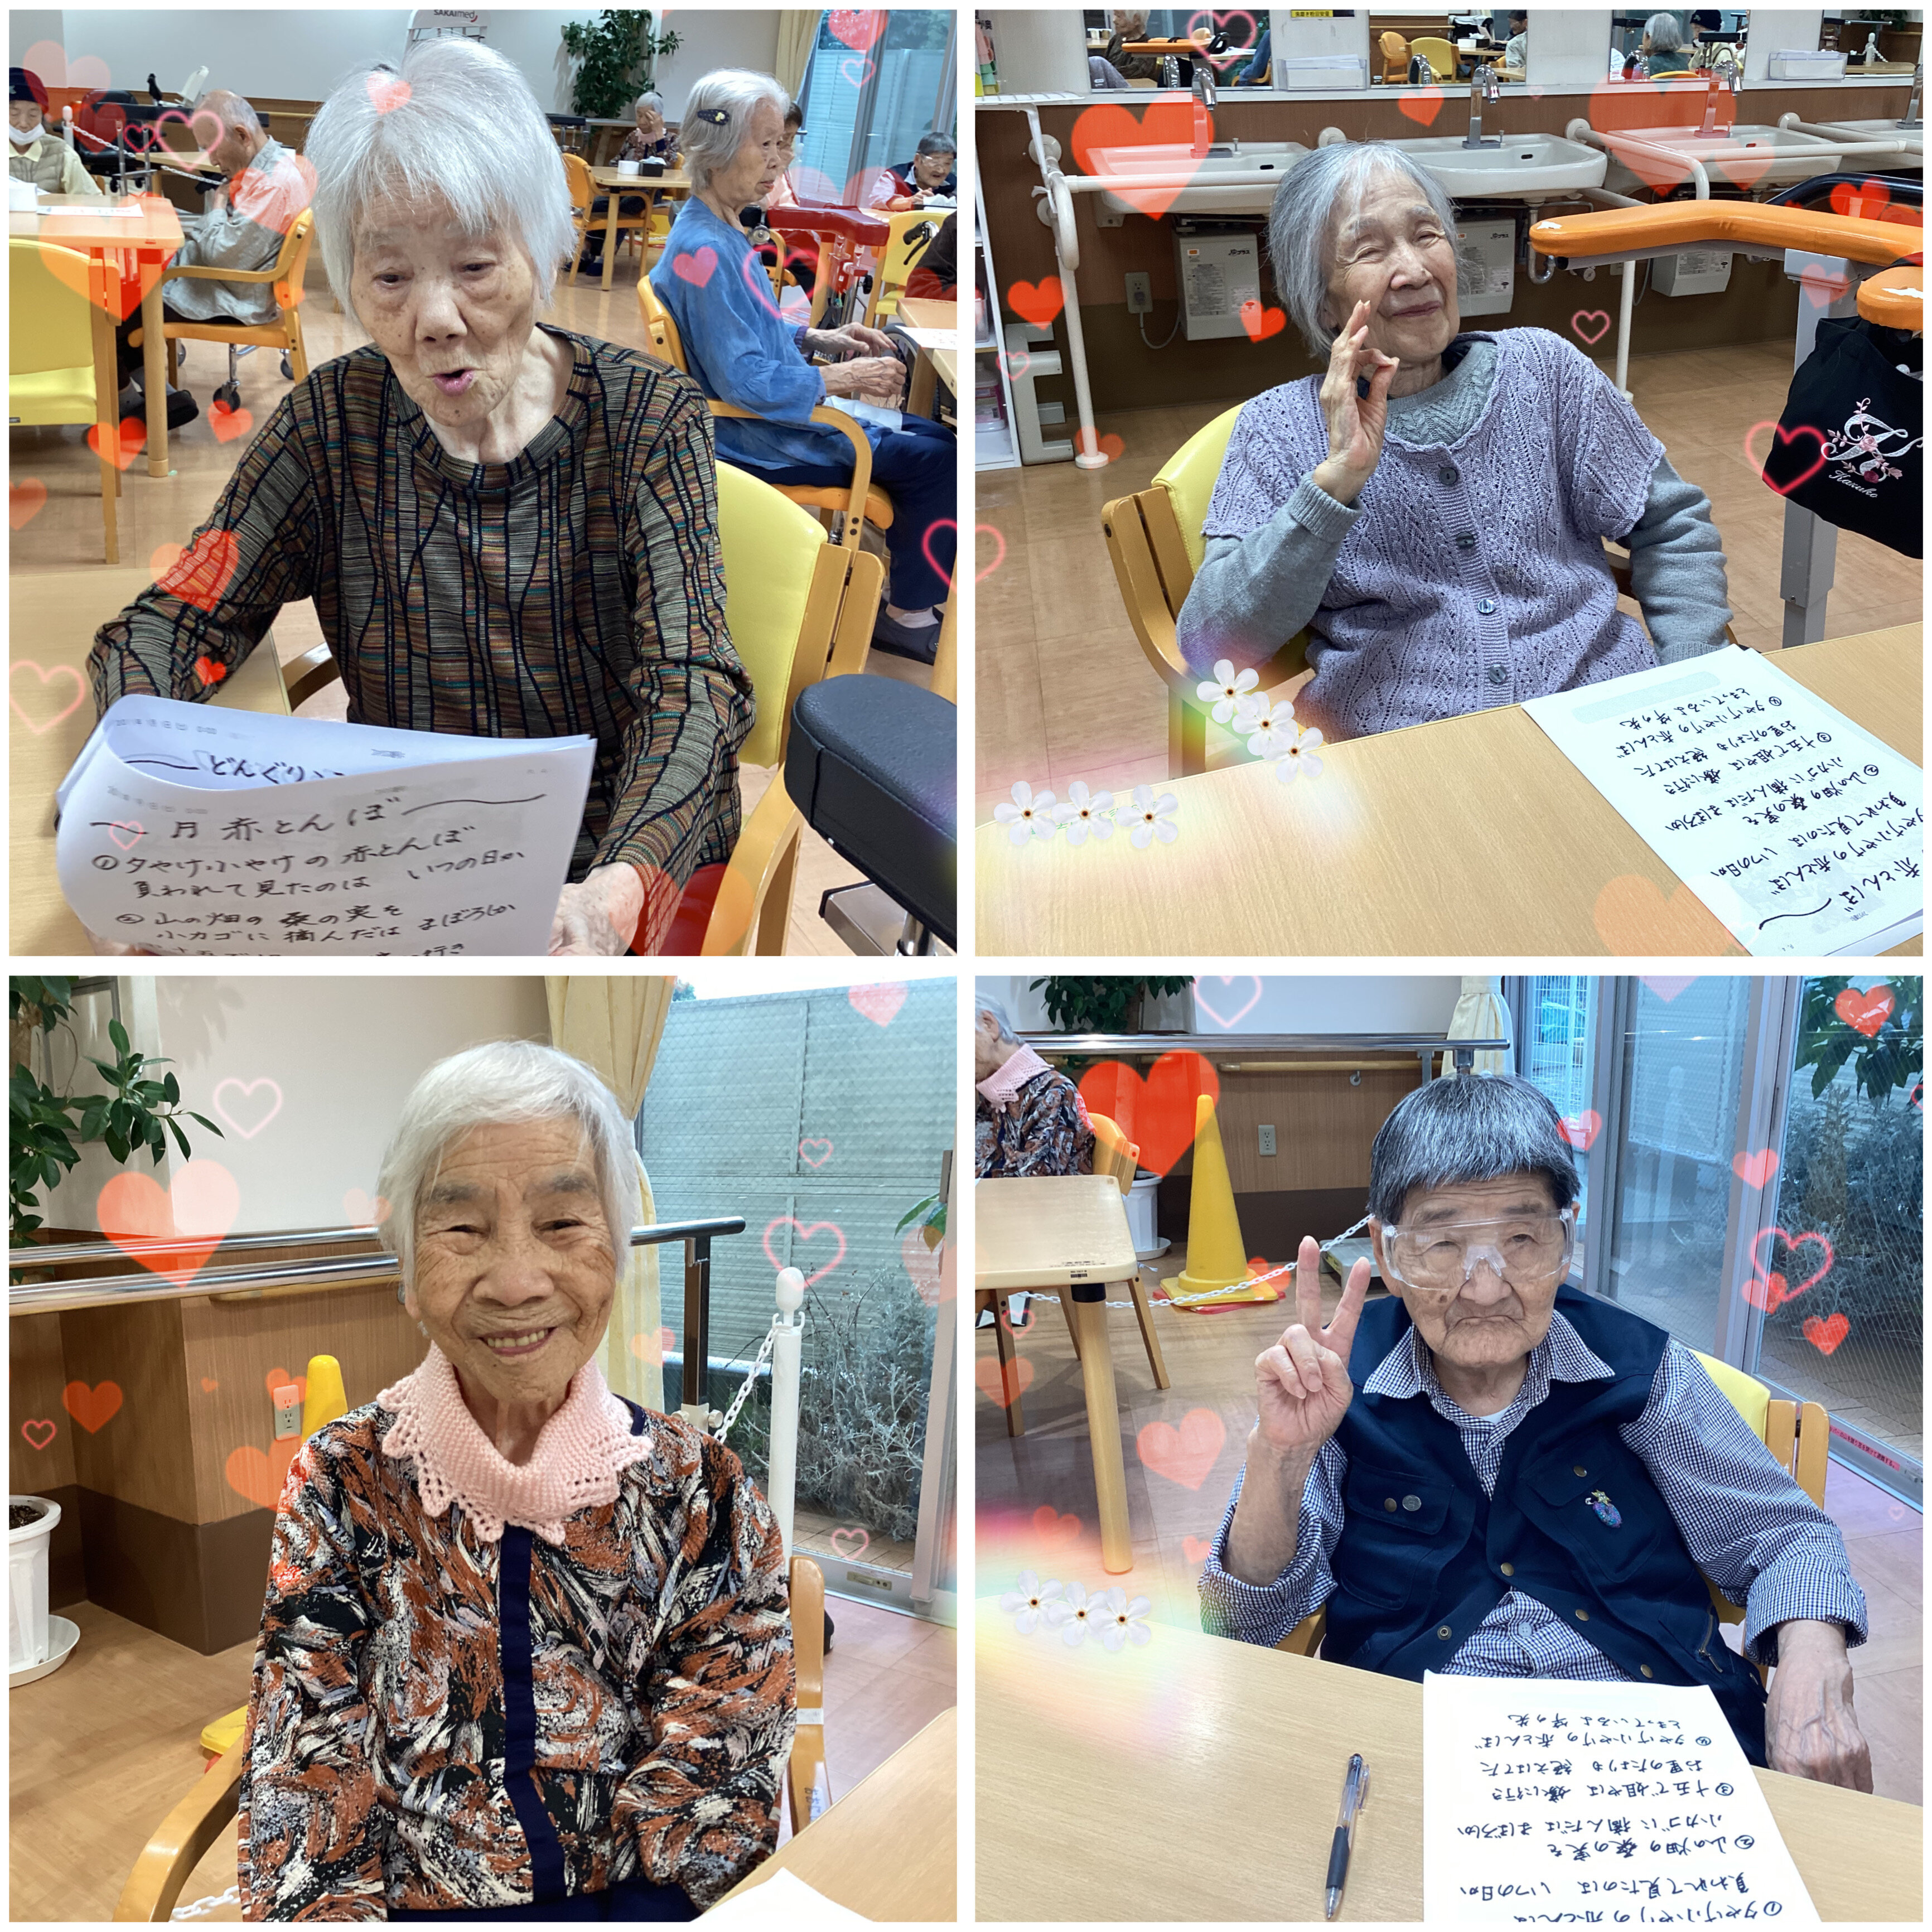 SAKAImed
どんぐりころ
月 赤とんぼ
①夕やけ小やけの 赤とんぼ
負われて見たのは いつの日か
②山の畑の 桑の実を
小カゴに 摘んだは まぼろしか
Kazuko
赤とんぼ
夕やけ小やけの 赤とんぼ
負われて見たのは いつの日か
②山の畑の 桑の実を
小カゴに 摘んだは まぼろしか
③十五で姐やは 嫁に行き
お里のたよりも 絶えはてた
④夕やけ小やけの 赤とんぼ
とまっているよ 竿の先
①夕やけ小やけの 赤とんぼ
負われて見たのは いつの日か
②山の畑の 桑の実を
小カゴに 摘んだは まぼろしか
③十五で姐やは 嫁に行き
お里のたよりも 絶えはてた
④夕やけ小やけの 赤とんぼ
とまっているよ 竿の先